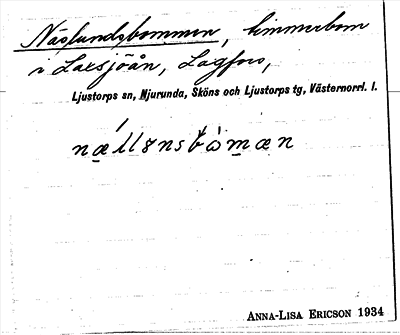 Näslundsbommen, timmerbom
i Laxsjöån, Lagfors,
Ljustorps sn, Njurunda, Sköns och Ljustorps tg, Västernorrl. l.
ANNA-LISA ERICSON 1934